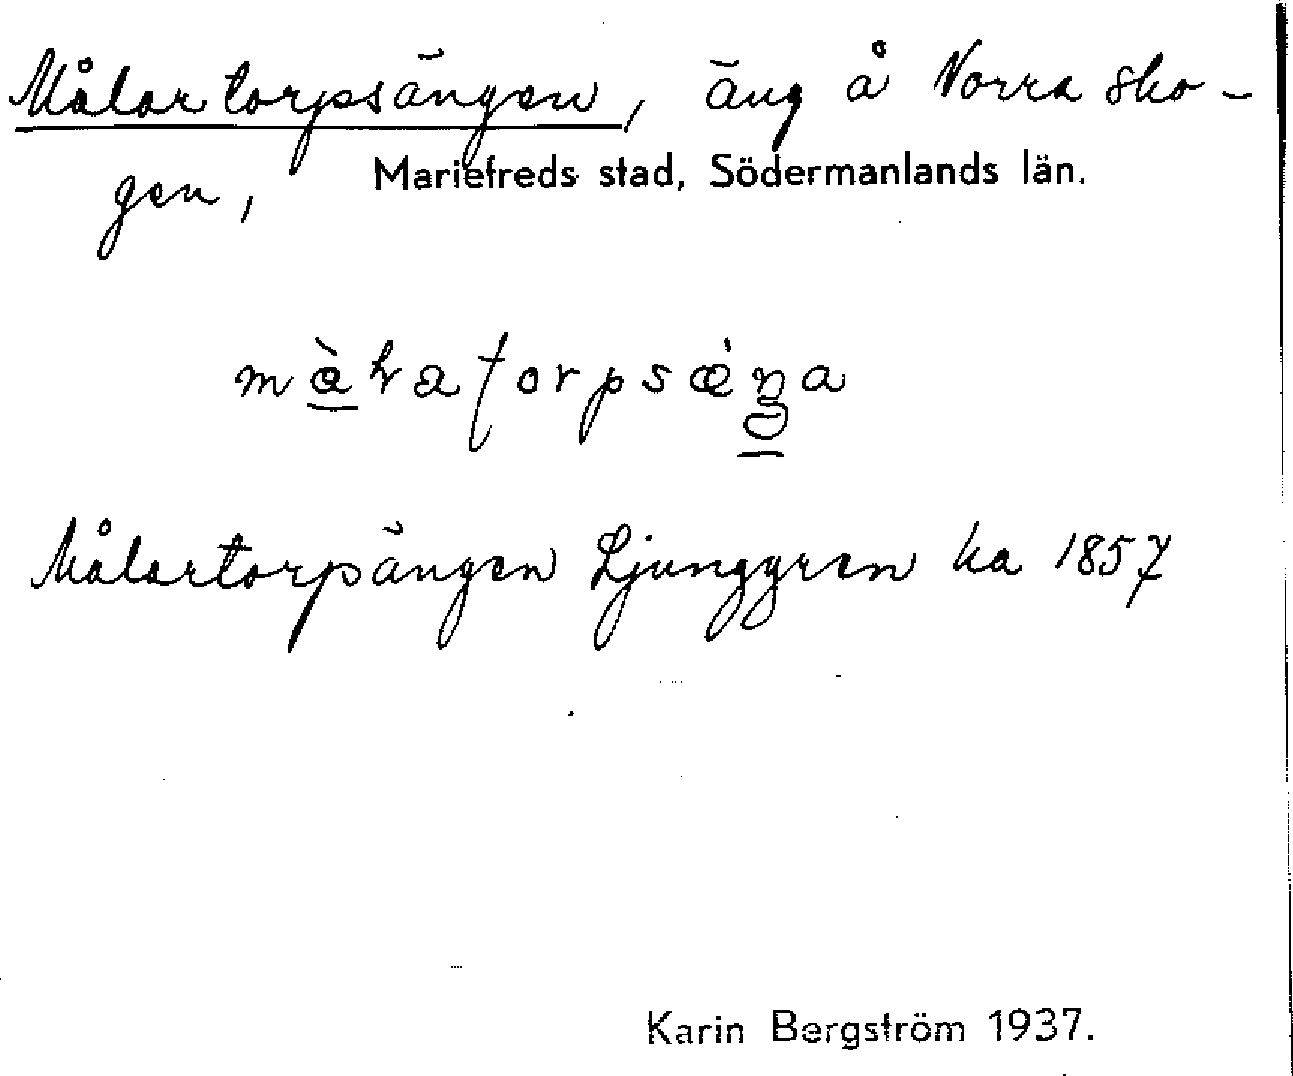 Målartorpsängen, äng å Norra sko-
gen, Mariefreds stad, Södermanlands län.
Målartorpängen Ljunggren ka 1857
Karin Bergström 1937.